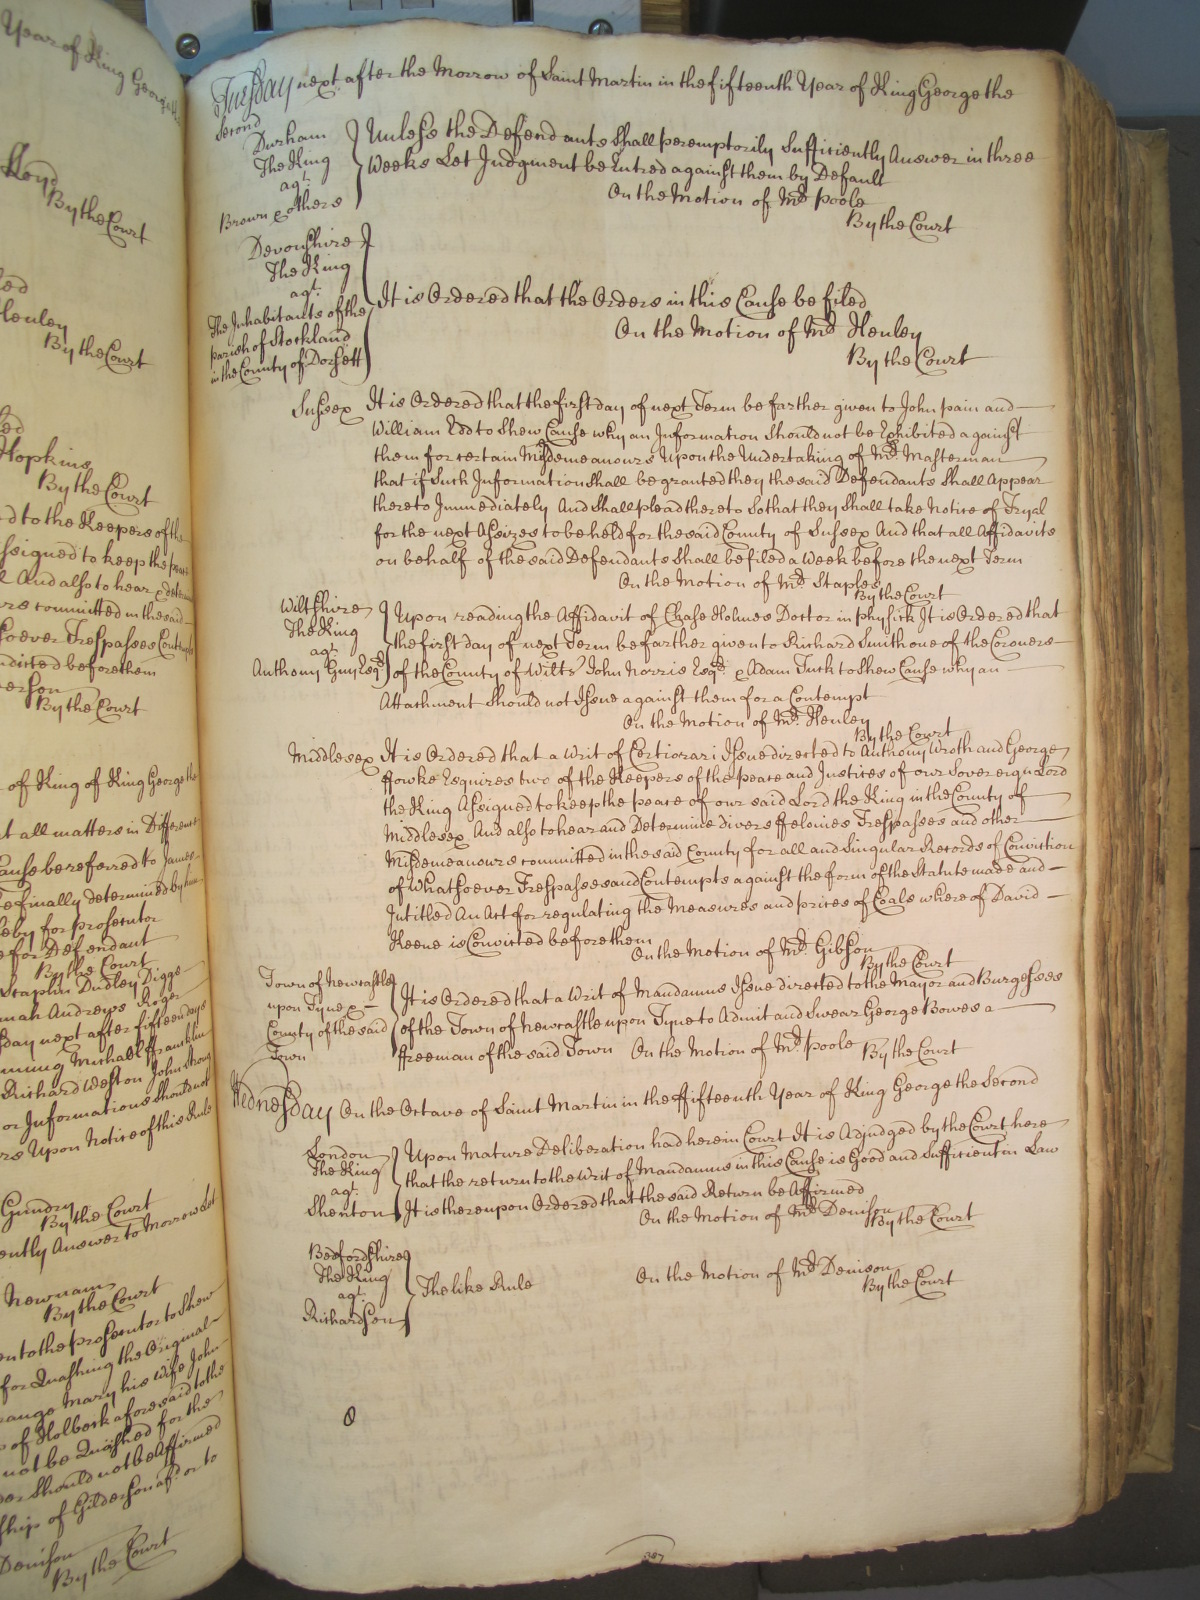 Year of King George the
Lloyd
By the Court
Henley
By the Court
Hopkins
By the Court
ed to the Keepers of the
ssigned to keep the peace
And also to hear & determine
committed in the said
soever Trespasses Contempts
ndicted before them
By the Court
of King of King George the
t all matters in Difference
Cause be referred to James
be finally determined by him
for prosecutor
for Defendant
By the Court
Staplin Dudley Diggs
mah Andrews Roger
sday next after fifteen days
Michaell ffranklin
Richard Weston John Strong
or Informations should not
Upon Notice of this Rule
Gundry
By the Court
ently Answer to Morrow Let
Newnam
By the Court
en to the prosecutor to Shew
for Quashing the Original
Mary his wife John
of Holbeck aforesaid to the
not be Quashed for the
der should not be Affirmed
ship of Gilderson afd. or to
Denison
By the Court
Tuesday next after the Morrow of Saint Martin in the fifteenth Year of King George the
Second
Durham
The King
agt.
Brown & others
Unless the Defendants Shall peremptorily Sufficiently Answer in three
Weeks Let Judgment be Entred against them by Default
On the Motion of Mr. Poole
By the Court
Devonshire
The King
agt.
The Inhabitants of the
parish of Stockland
in the County of Dorsett
It is Ordered that the Orders in this Cause be filed
On the Motion of Mr. Henley
By the Court
Sussex It is Ordered that the first day of next Term be farther given to John pain and
William Edd to Shew Cause why an Information Should not be Exhibited against
them for certain Misdemeanours Upon the Undertaking of Mr. Masterman
that if Such Information shall be granted they the said Defendants Shall Appear
thereto Immediately And Shall plead thereto So that they Shall take Notice of Tryal
for the next Assizes to be held for the said County of Sussex And that all Affidavits
on behalf of the said Defendants Shall be filed a Week before the next Term
On the Motion of Mr. Staples
By the Court
Wiltshire
The King
agt.
Anthony Guy Esqr.
Upon reading the Affidavit of Chase Holmes Doctor in physick It is Ordered that
the first day of next Term be farther given to Richard Smith one of the Coroners
of the County of Wilts John Norris Esqr. & Adam Tuck to Shew Cause why an
Attachment Should not Issue against them for a Contempt
On the Motion of Mr. Henley
By the Court
Middlesex It is Ordered that a Writ of Certiorari Issue directed to Anthony Wroth and George
ffowke Esquires two of the Keepers of the peace and Justices of our Sovereign Lord
the King Assigned to keep the peace of our said Lord the King in the County of
Middlesex And also to hear and Determine divers ffelonies Trespasses and other
Misdemeanours committed in the said County for all and Singular Records of Conviction
of Whatsoever Trespasses and Contempts against the form of the Statute made and
Intitled An Act for regulating the Measures and prices of Coals where of David
Keene is Convicted before them
On the Motion of Mr. Gibson
By the Court
Town of Newcastle
upon Tyne &
County of the said
Town
It is Ordered that a Writ of Mandamus Issue directed to the Mayor and Burgesses
of the Town of Newcastle upon Tyne to Admit and Swear George Bowes a
ffreeman of the said Town On the Motion of Mr. Poole
By the Court
Wednesday On the Octave of Saint Martin in the ffifteenth Year of King George the Second
London
The King
agt.
Shenton
Upon Mature Deliberation had herein Court It is Adjudged by the Court here
that the return to the Writ of Mandamus in this Cause is Good and Sufficient in Law
It is thereupon Ordered that the said Return be Affirmed
On the Motion of Mr. Denison
By the Court
Bedfordshire
The King
agt.
Richardson
The like Rule
On the Motion of Mr. Denison
By the Court